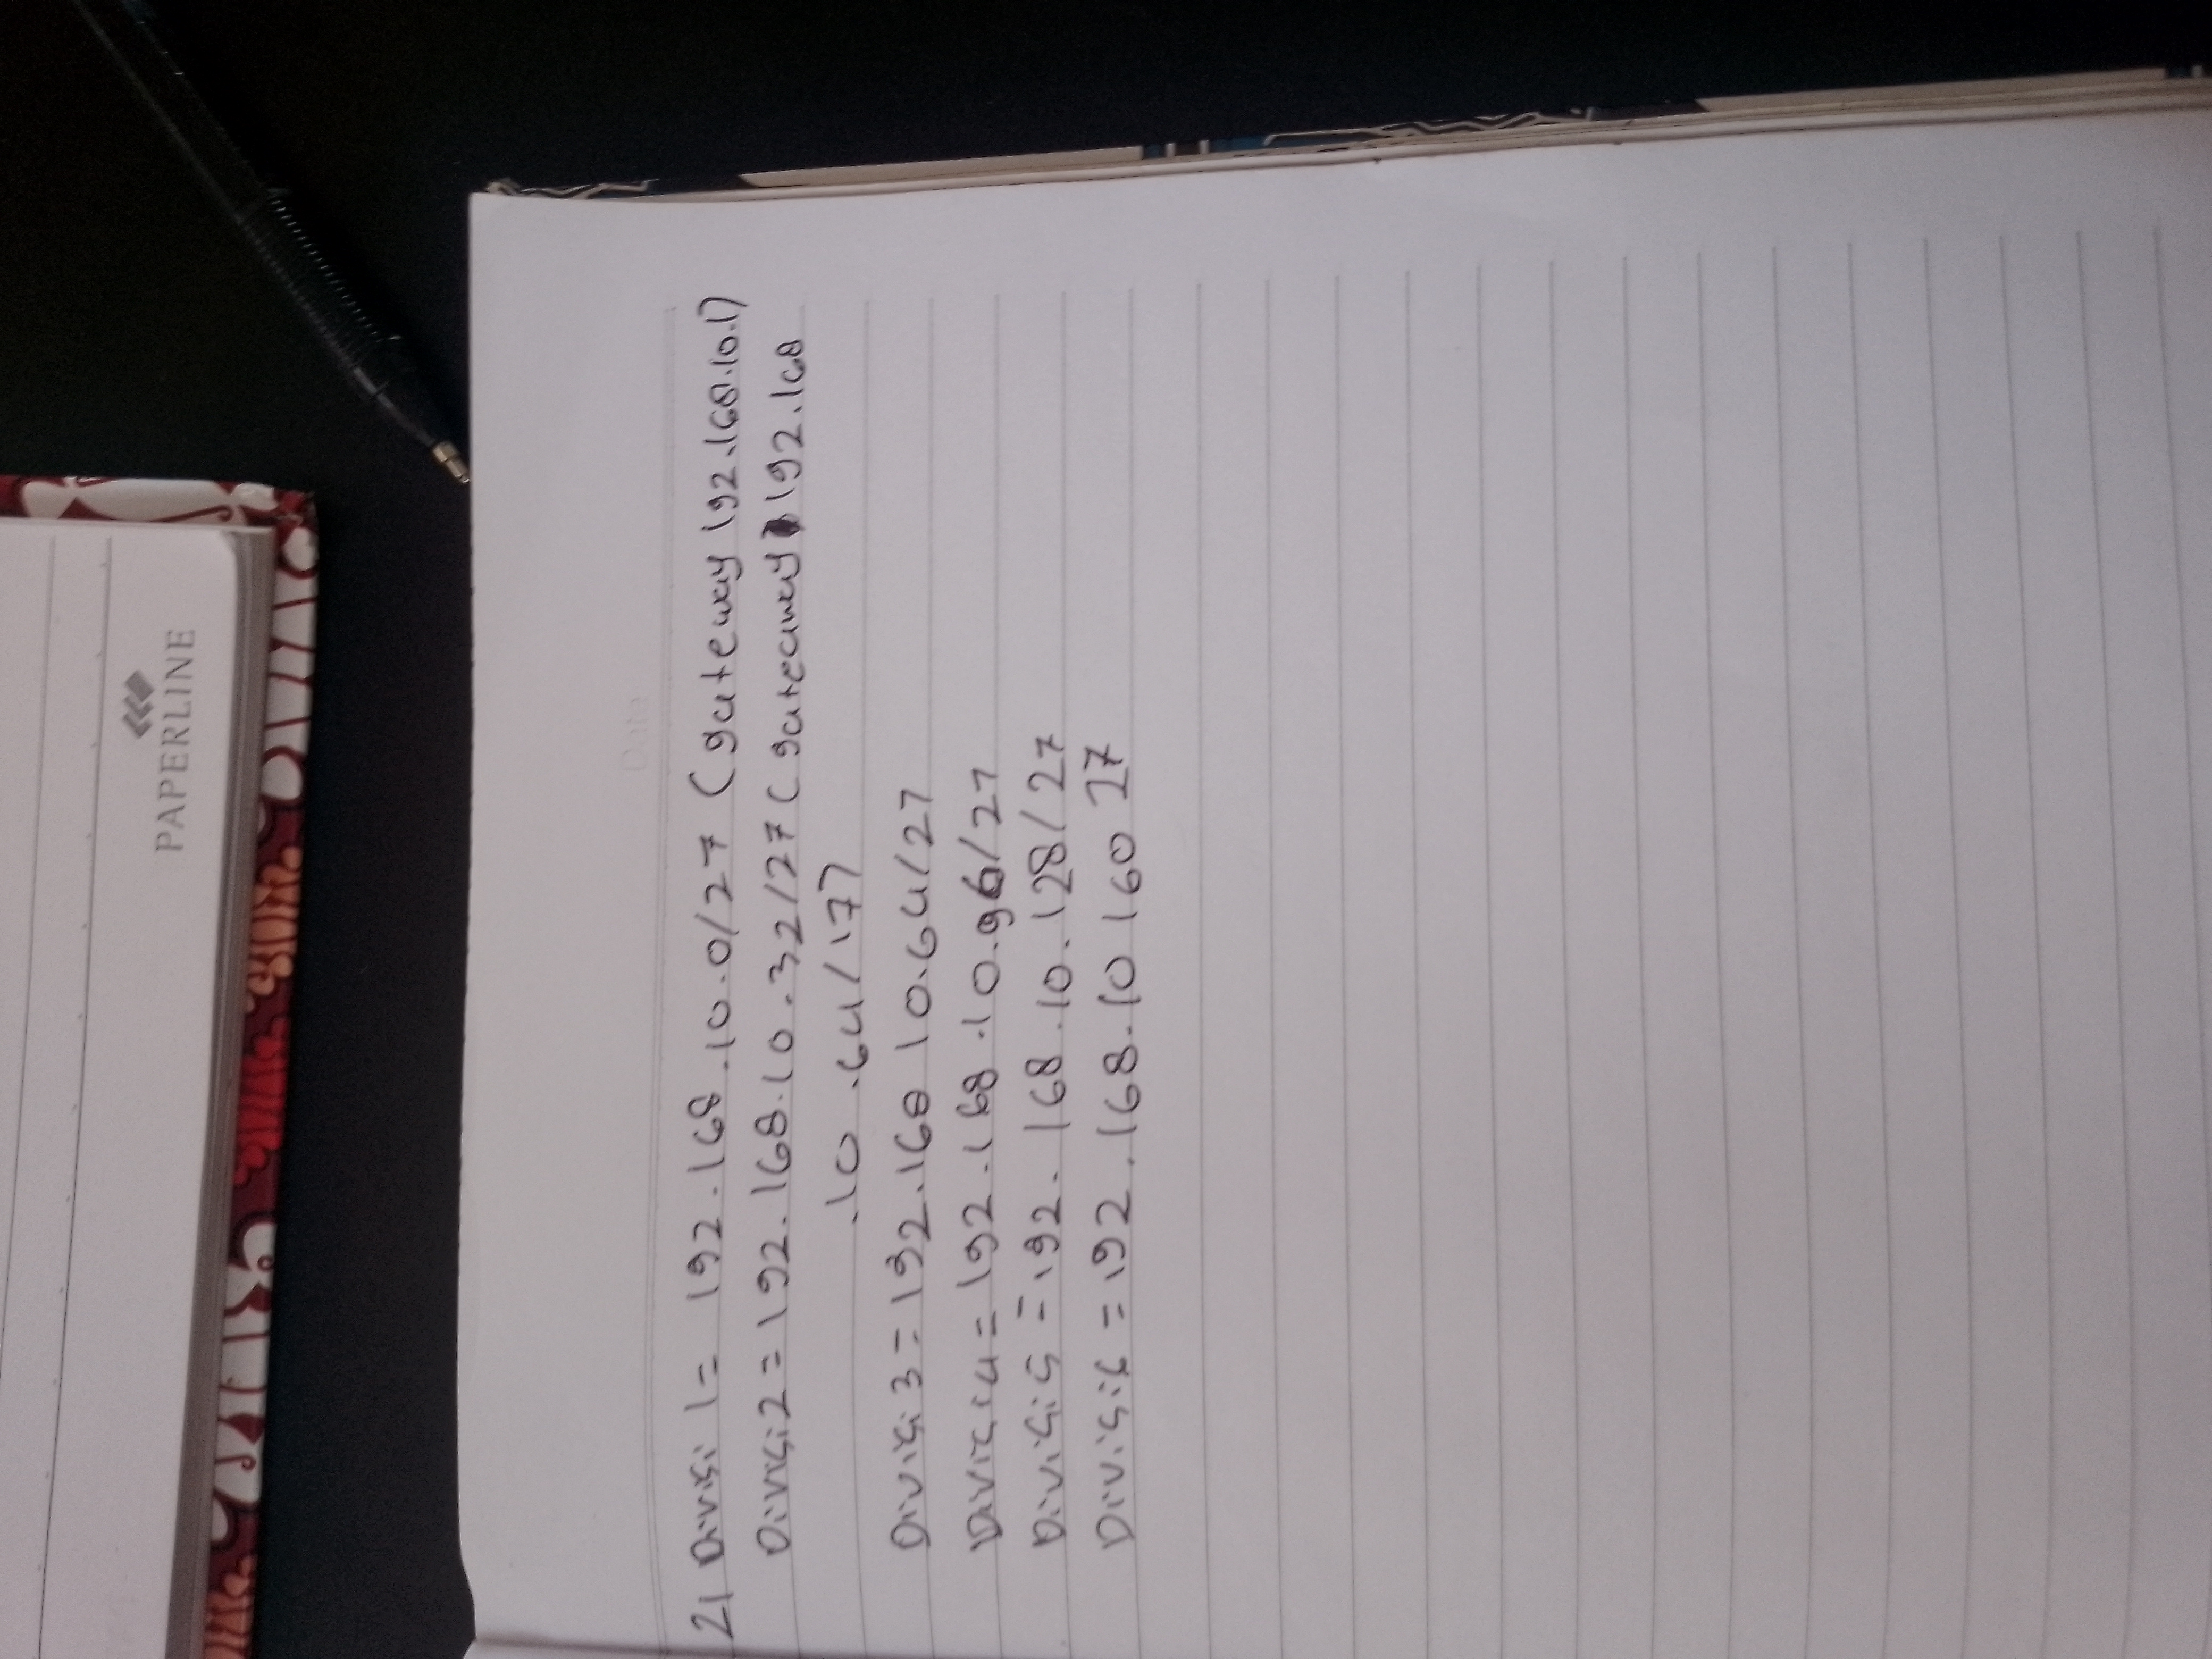 Date
2) Divisi 1 = 192.168.10.0/27 (gateway 192.168.10.1)
Divisi 2 = 192.168.10.32/27 (gateway 192.168
.10.64/17)
Divisi 3 = 192.168 10.64/27
Divisi 4 = 192.168.10.96/27
Divisi 5 = 192.168.10.128/27
Divisi 6 = 192.168.10 160 27
PAPERLINE